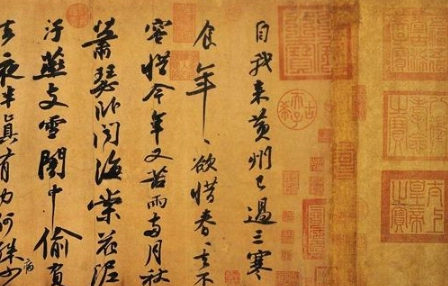 自我來黃州已過三寒
食年、欲惜春、去不
容惜今年又苦雨兩月秋
蕭瑟臥聞海棠花泥
汙燕支雪闇中偷負
去夜半真有力何殊少